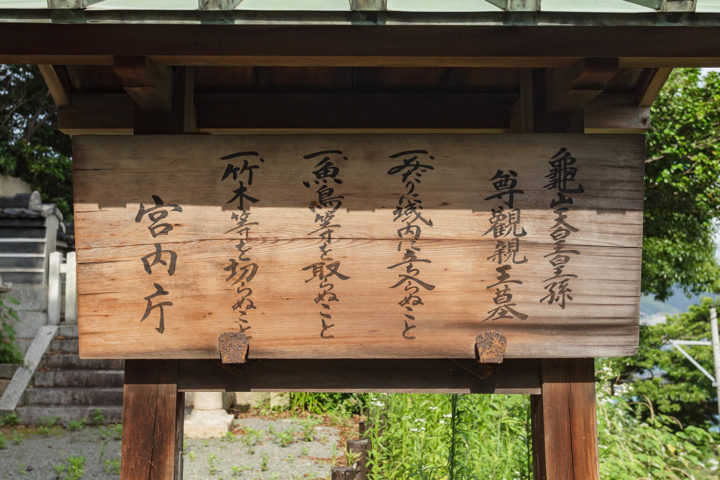 龜山天皇皇孫
尊觀親王墓
一みだりに域内に立ち入らぬこと
一魚鳥等を取らぬこと
一竹木等を切らぬこと
宮内庁